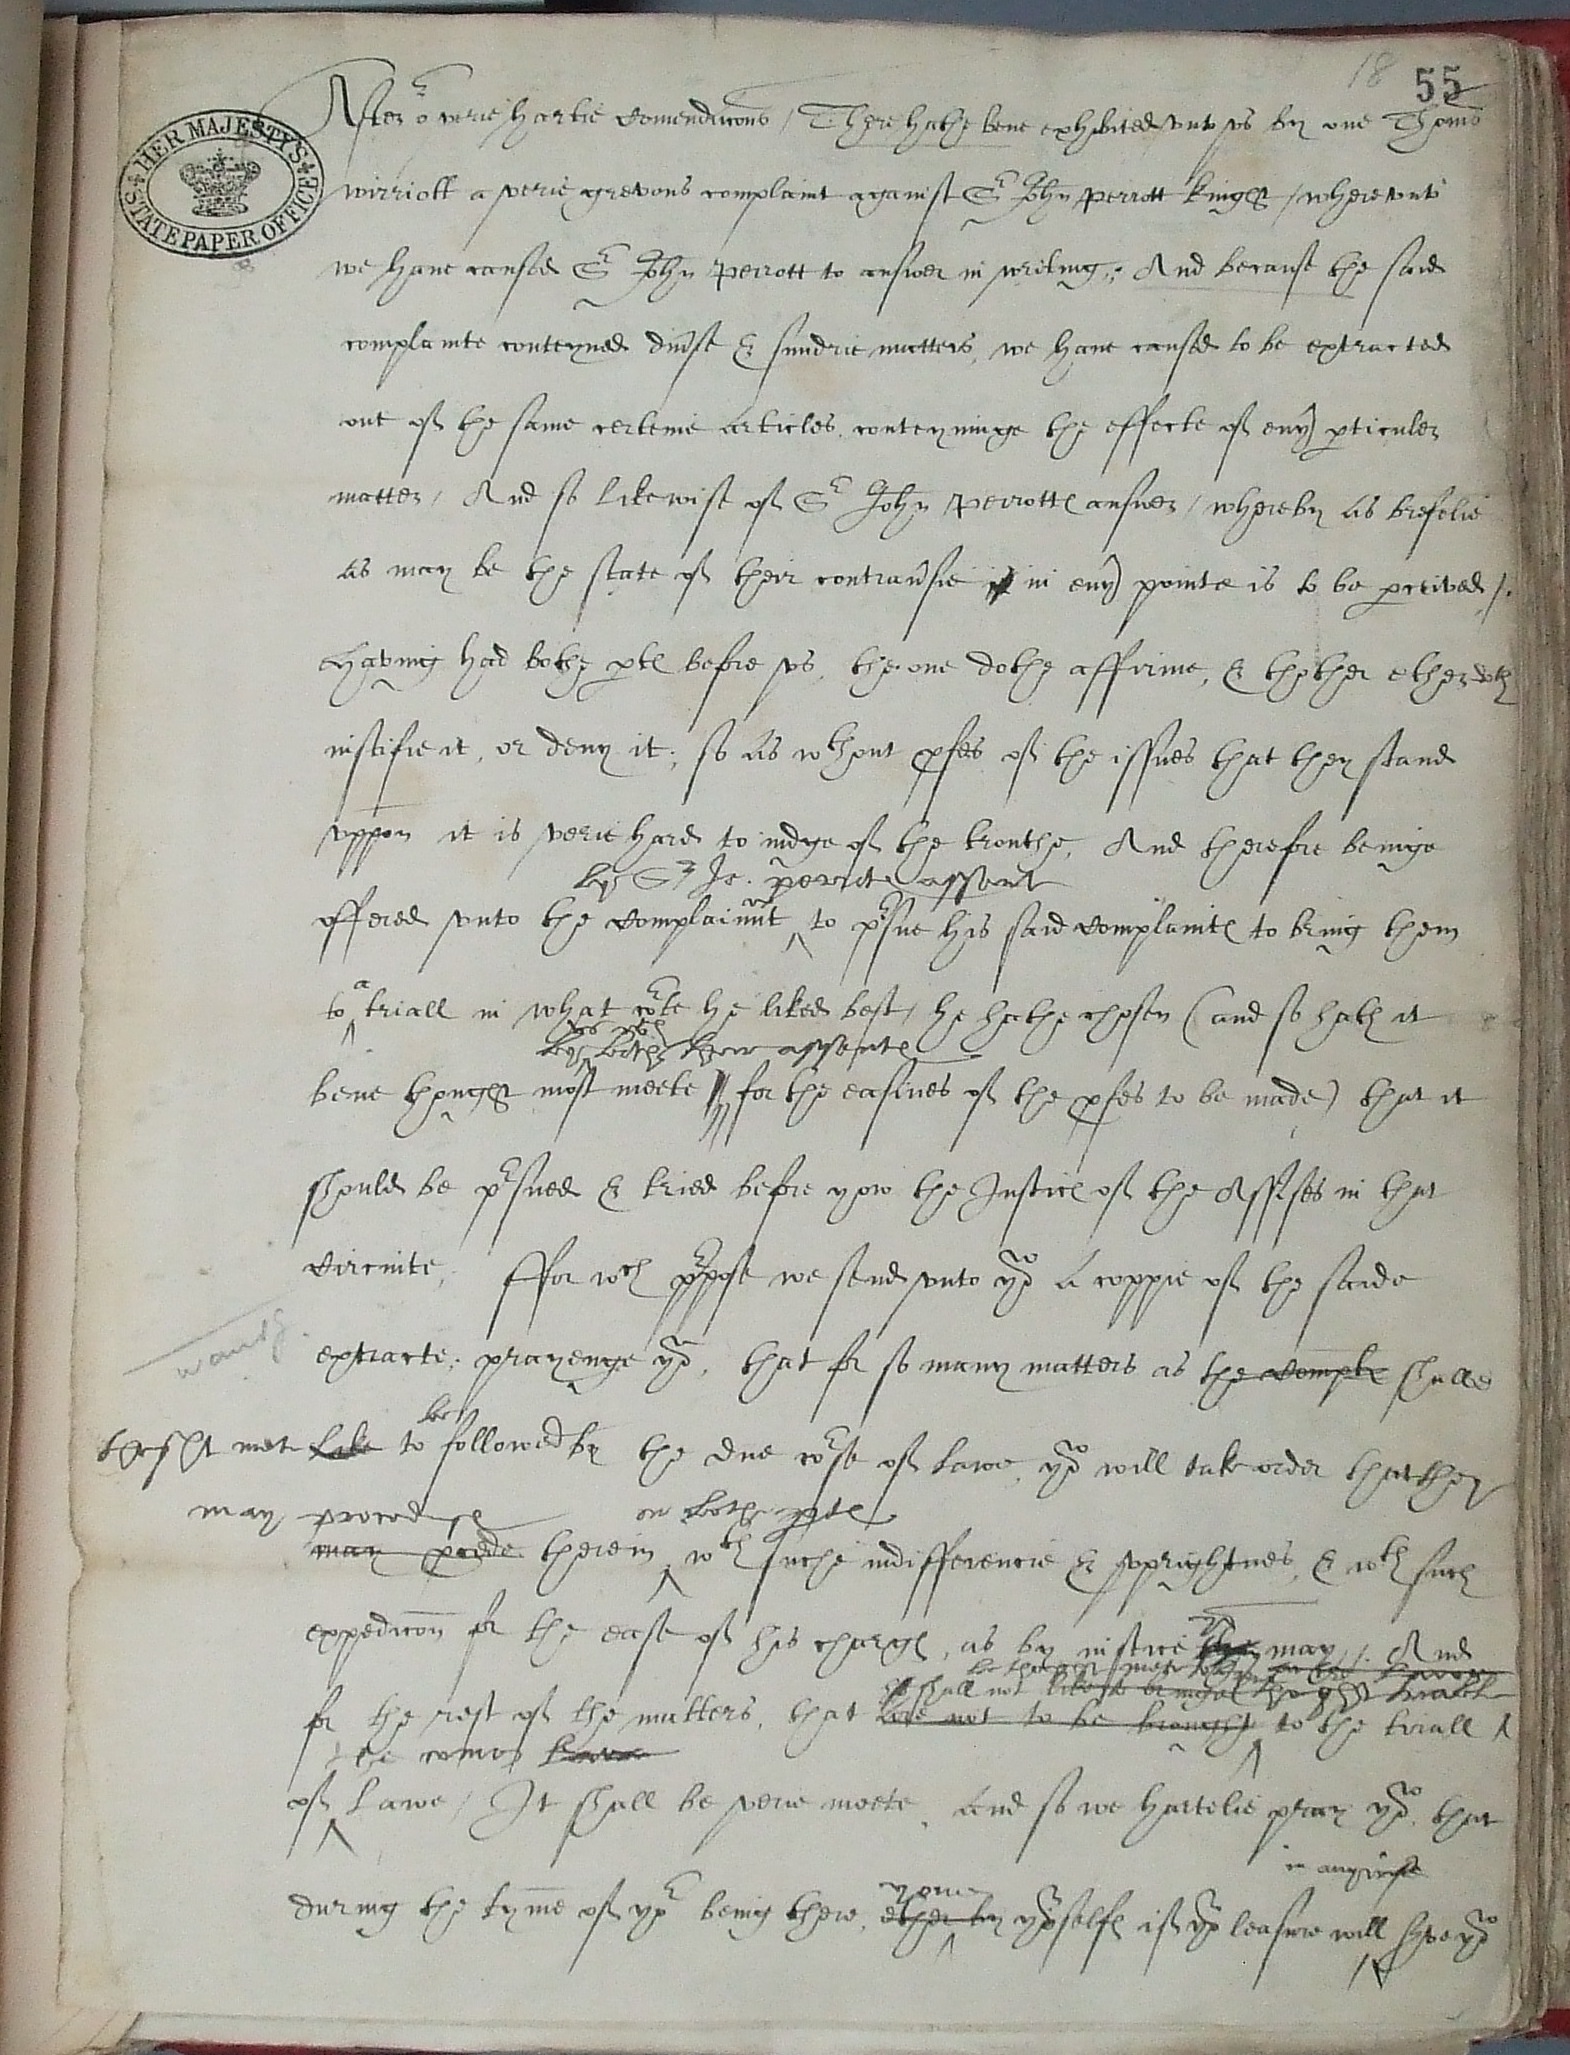 18 55
HER MAJESTY'S STATE PAPER OFFICE
After or verie hartie Comendacons / There hathe bene exhibited unto us by one Thoms
wirriott a verie grevous complaint against Sr John Perrott knight / whereunto
we have caused Sr John Perrott to answer in writing; And because the said
complainte conteyned diverse & sundrie matters, we have caused to be extracted
out of the same certeine Articles, conteyninge the effecte of every pticuler
matter / And so likewise of Sr John Perrottes answer / whereby as brefelie
as may be the state of their contraversie in every pointe is to be pceived /.
Having had bothe ptes before us, the one dothe affirme, & thother ether doth
iustifie it, or deny it; so as wthout profes of the issues that they stand
uppon it is verie hard to iudge of the trouthe, And therefore beinge
by Sr Jo. perrotes assent
offered unto the Complainnt to prsue his said Complaintes to bring them
to a triall in what corte he liked best, he hathe chosen (and so hath it
by both their assentes
bene thought most meete for the easines of the profes to be made) that it
should be prsued & tried before yow the Justices of the Assises in that
Circuite, ffor wch purpose we send unto you a coppie of the saide
wantes.
extracte; prayenge you, that for so many matters as the Compl shalbe
thoght mete like to be followed by the due course of Lawe, you will take order that they
may procede on both ptes
may procede therein wth suche indifferencie & uprightnes, & wth such
expedicon for the ease of his charges, as by iustice may /. And
shall not
for the rest of the matters, that are not to be brought to the triall
the comon
of Lawe / It shall be verie meete, and so we hartelie pray you, that
in any wise
during the tyme of yor being there, ether by yor selfes if yor leasure will